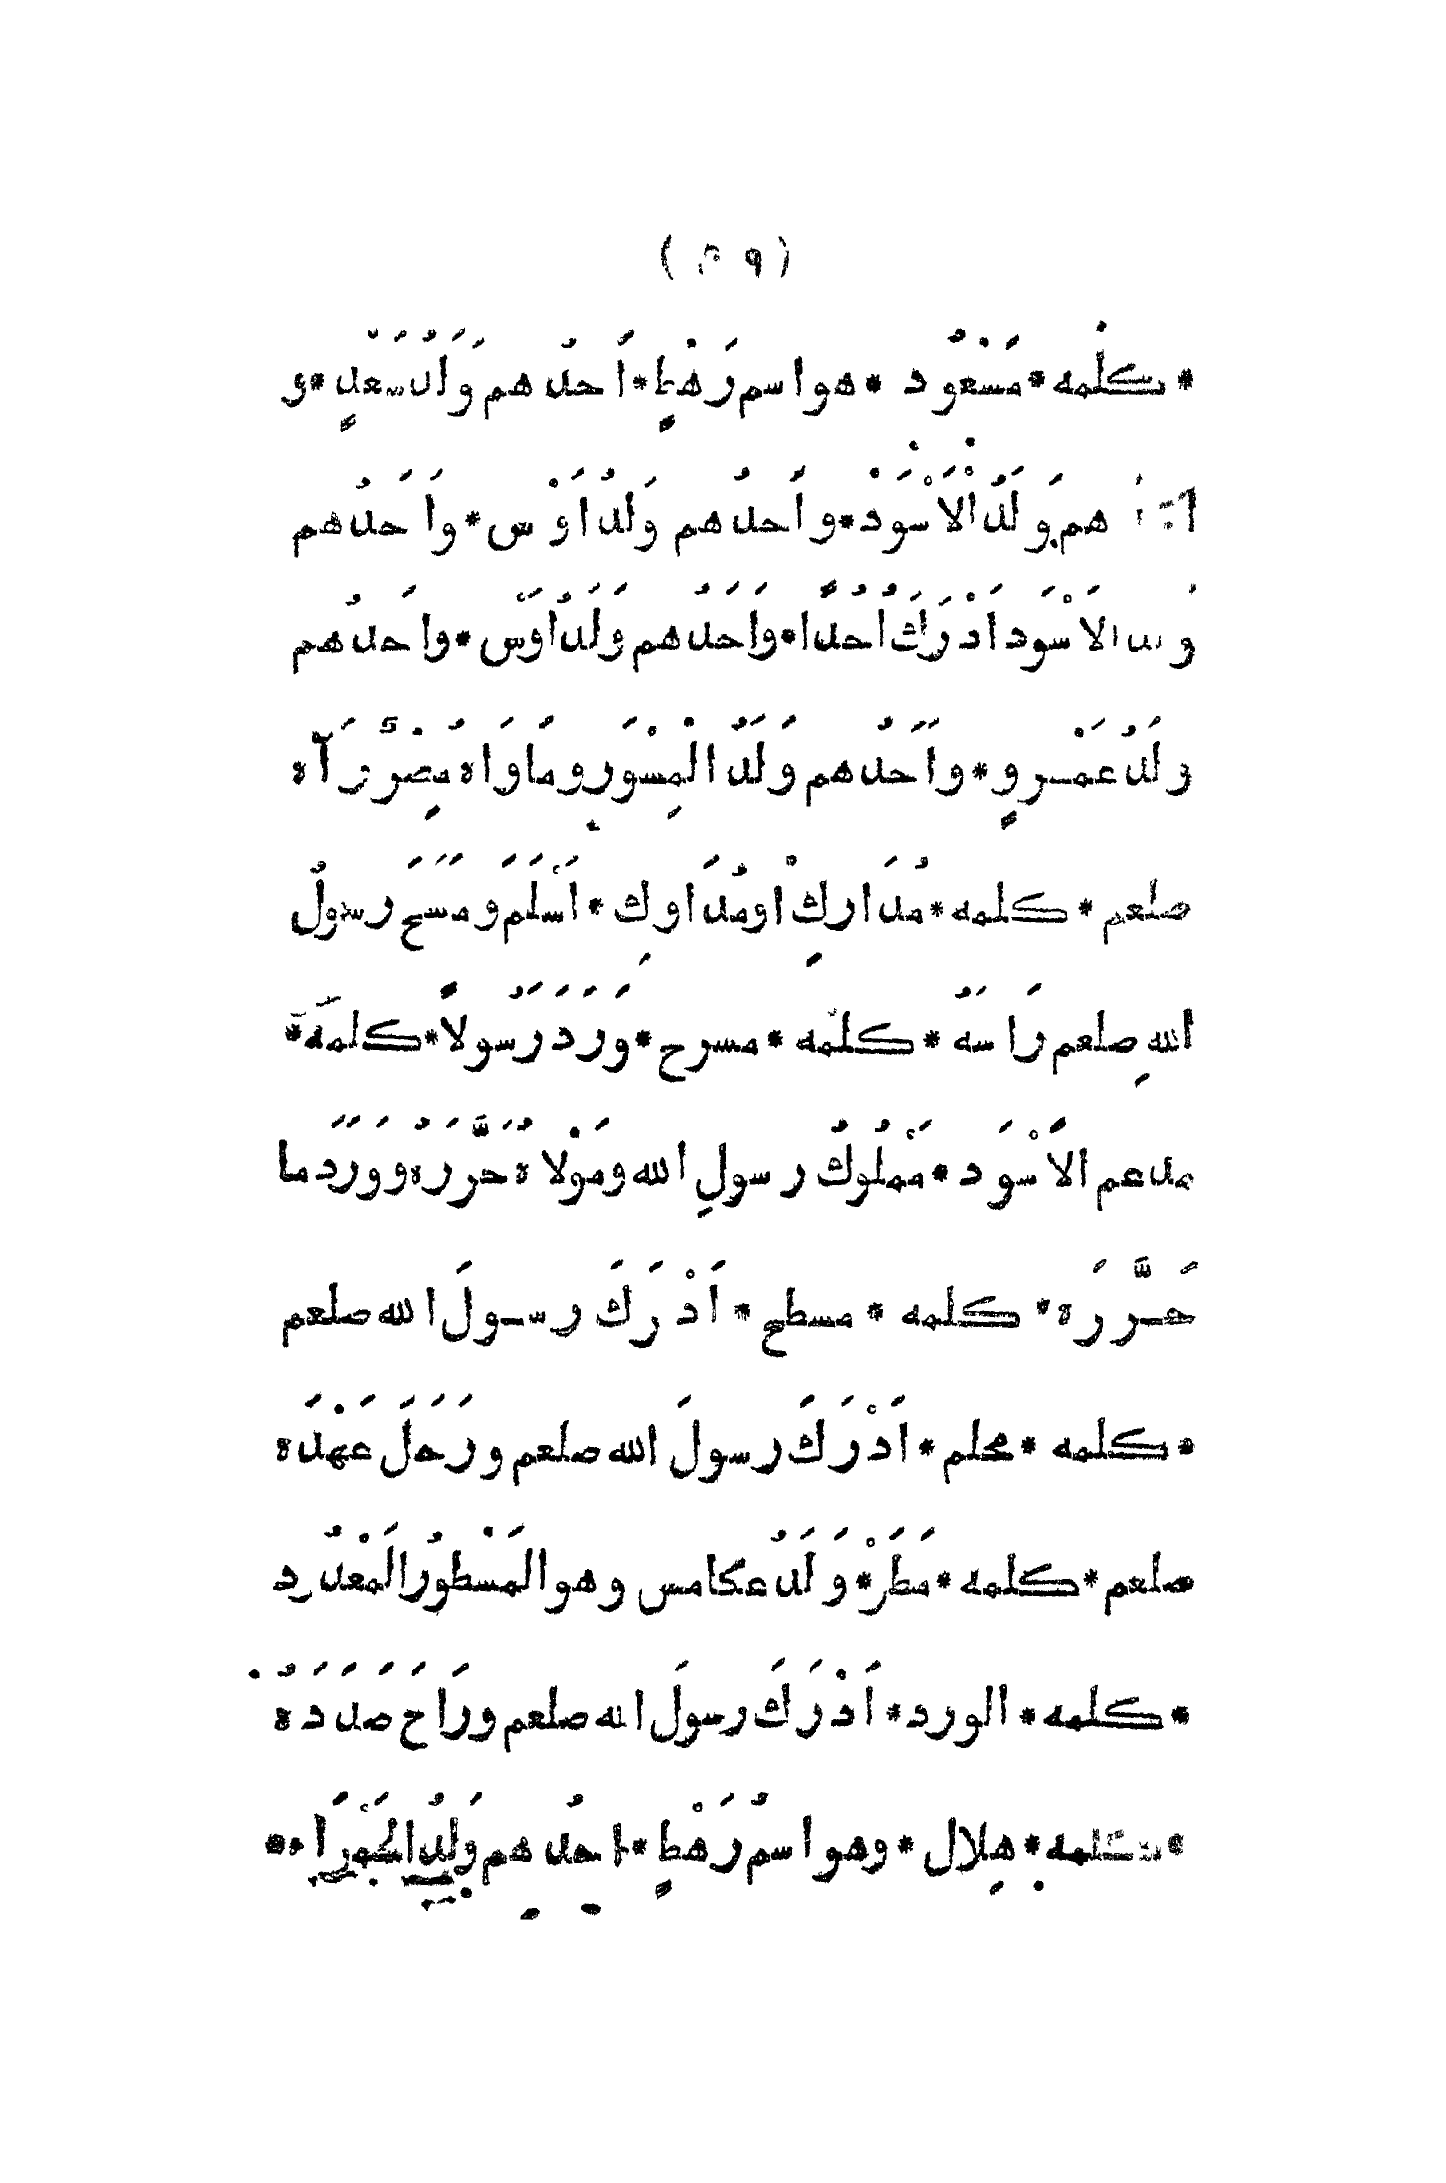 ( ٥٩ )
* كلمه * مَسْعُود * هو اسم رَهْطٍ * اَحدُ هم وَلَدُ سَعْدٍ * و
هم وَلَدُ الْاَسْوَدْ * و اَحدُ هم وَلدُ اَوْس * و اَحَدُهم
ولد الاَسْوَد اَدْرَكَ اُحُدًا * واَحَدُهم وَلَدُ اَوْس * واحدُهم
ولَدُ عَمْرٍو * و اَحَدُهم وَلَدُ الْمِسْوَرِ و مَاوَاهُ مِصْرُ رَآهُ
صلعم * كلمه * مُدَارِكْ او مُدَاوِك * اَسْلَمَ و مَسَحَ رسولُ
اللهِ صلعم رَاسَهُ * كلمه * مسرح * وَرَدَ رَسُولاً * كلمه *
مدعم الاَسْوَد * مَمْلُوكُ رسولِ الله ومَوْلاهُ حَرَّرَهُ و وَرَدَ مَا
حَرَّرَه * كلمه * مسطح * اَدْرَكَ رسولَ الله صلعم
* كلمه * محلم * اَدْرَكَ رسولَ الله صلعم ورَحَلَ عَهْدَهُ
صلعم * كلمه * مَطَرْ * وَلَدُ عكامس وهو الْمَسْطورُ
* كلمه * الورد * اَدْرَكَ رسولَ الله صلعم ورَاحَ صَدَدَهُ
* كلمه * هِلال * وهو اسمُ رَهْطٍ * احدُ هم وَلدُ